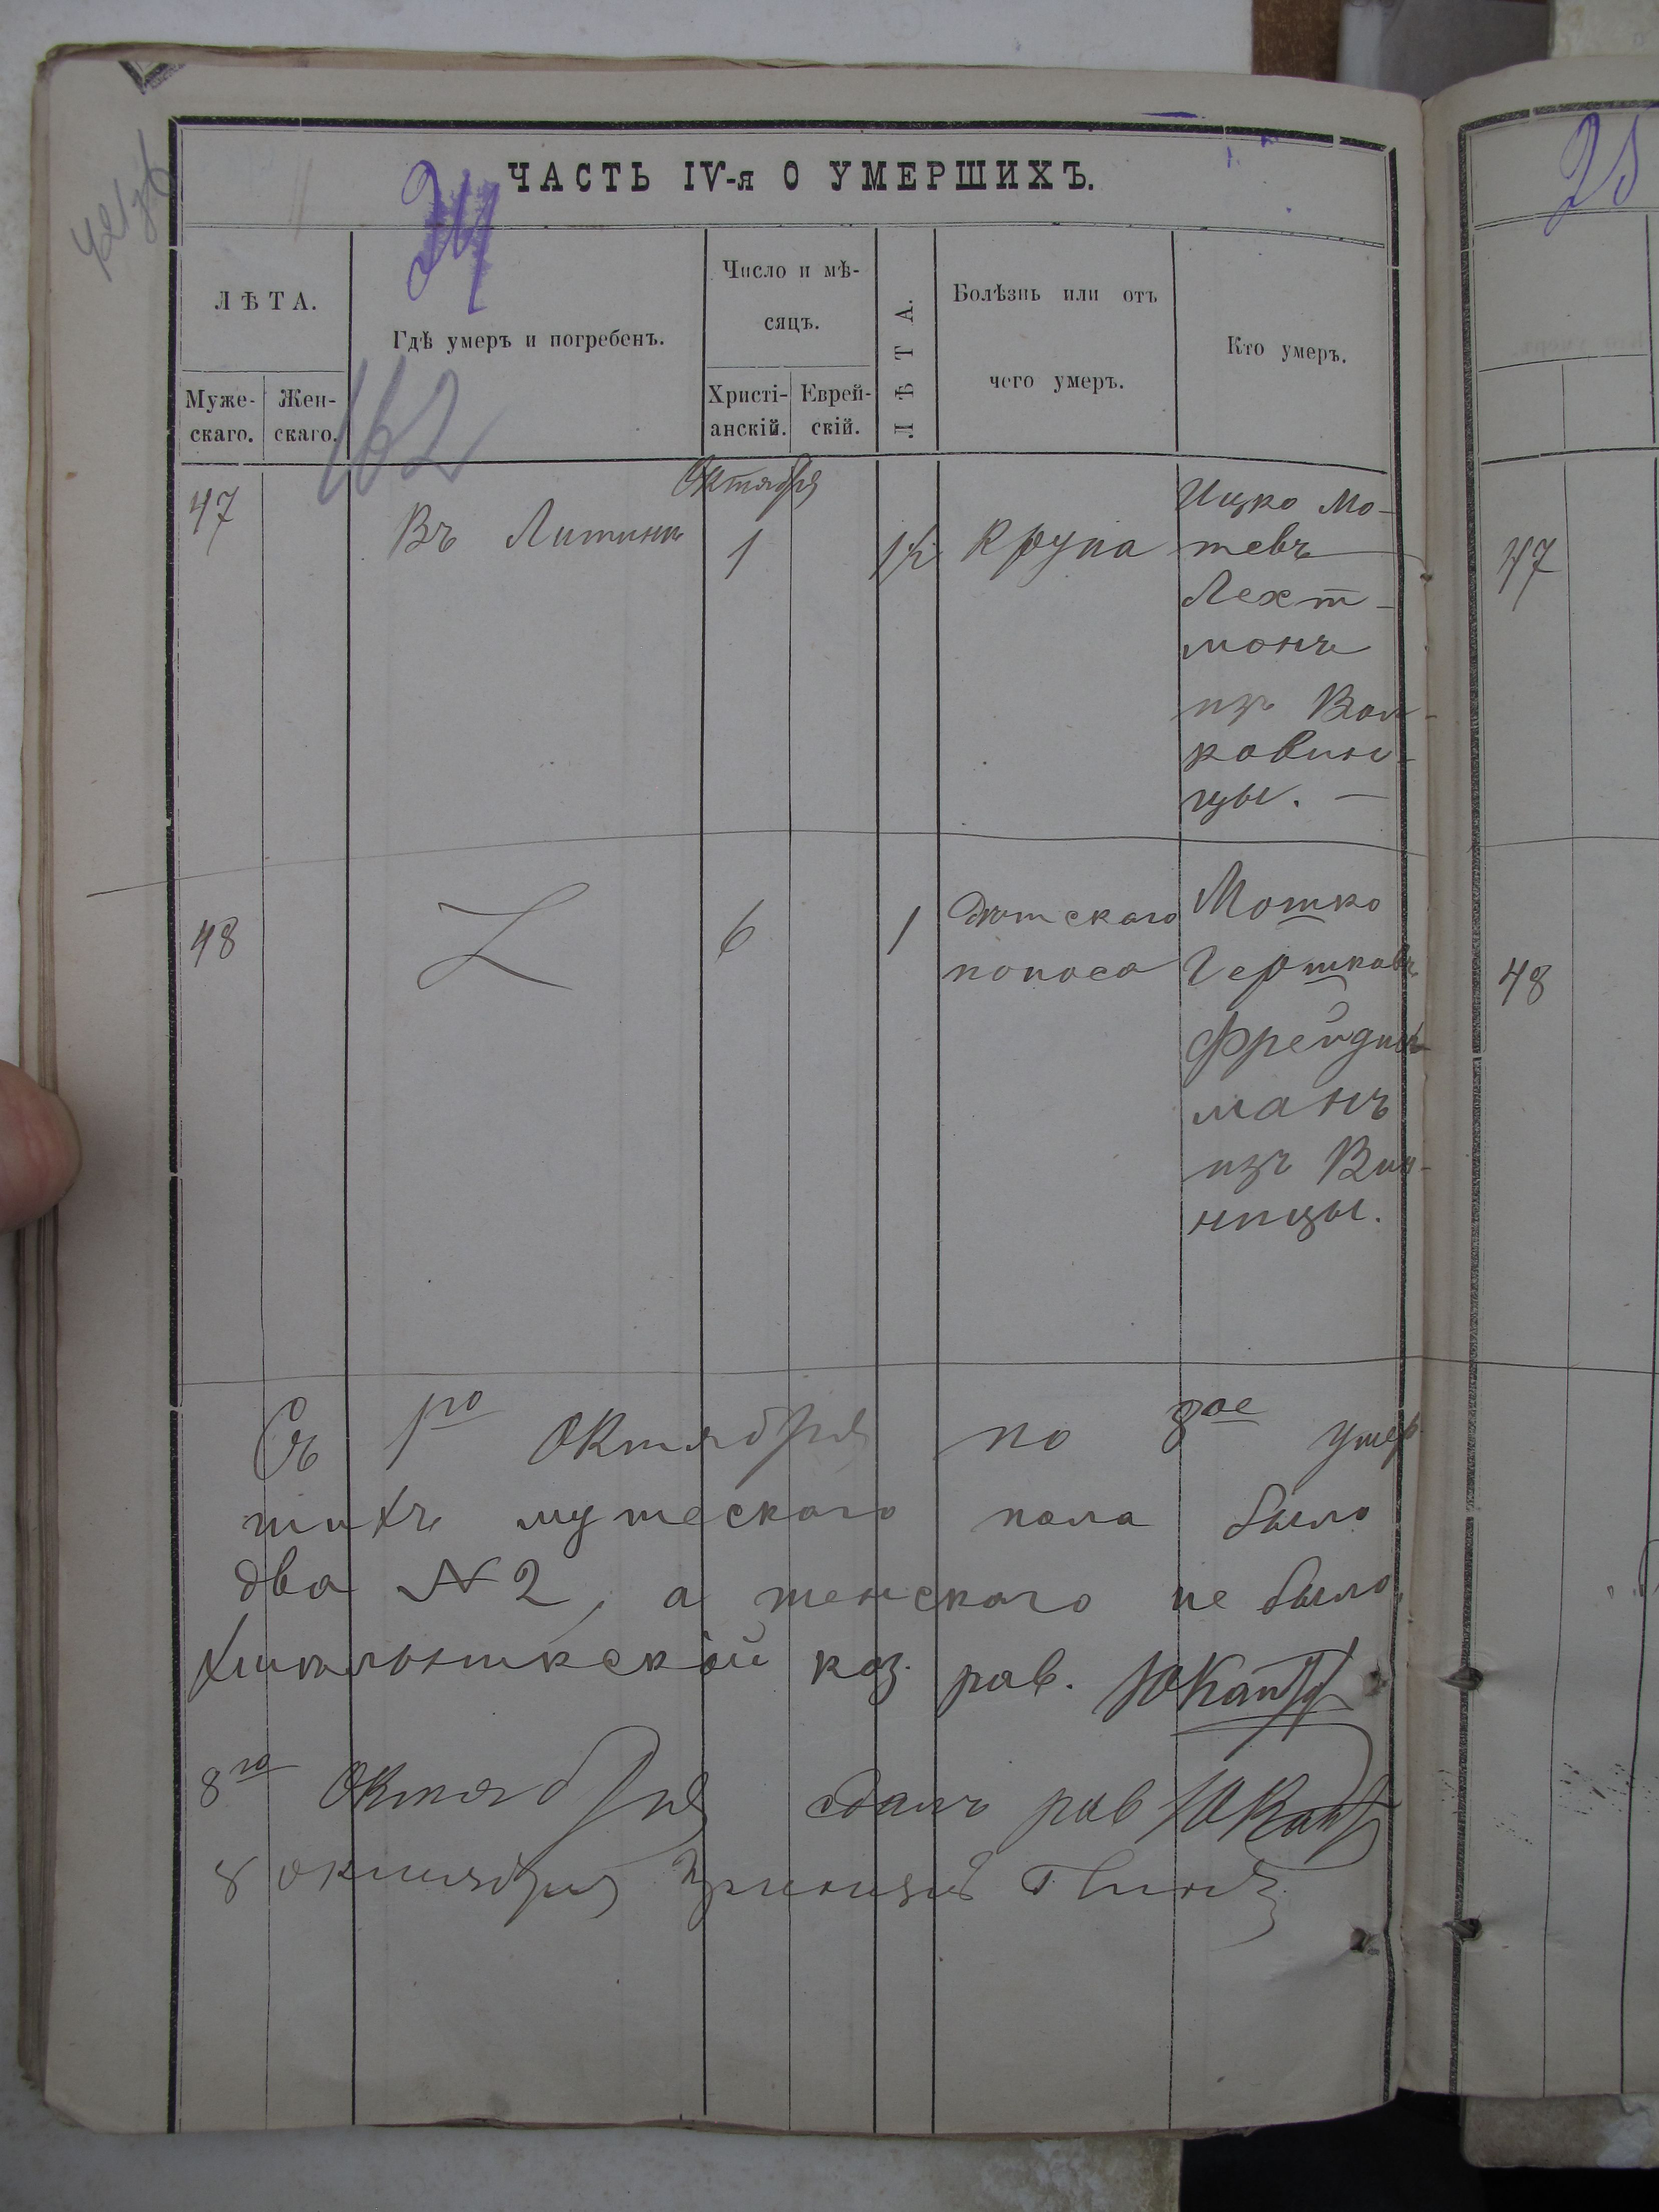 ЧАСТЬ IV-я О УМЕРШИХЪ.
24
25
162
ЛѢТА.
Муже-
скаго.
Жен-
скаго.
Гдѣ умеръ и погребенъ.
Число и мѣ-
сяцъ.
Христі-
анскій.
Еврей-
скій.
ЛѢТА.
Болѣзнь или отъ
чего умеръ.
Кто умеръ.
Октября
47
Въ Литинѣ
1
1½
Крупа
Ицко Мо-
тевъ
Лехт-
монъ
изъ Вол-
ковин-
цы. —
47
48
6
1
Дѣтскаго
поноса
Мошко
Гершковъ
Фрейд
манъ
изъ Вин-
ницы.
48
Съ 1го Октября по 8ое умер
шихъ мужескаго пола было
два №2, а женскаго не было,
каз. рав. ЮКант
8го Октября сдалъ рав ЮКант
8 октября